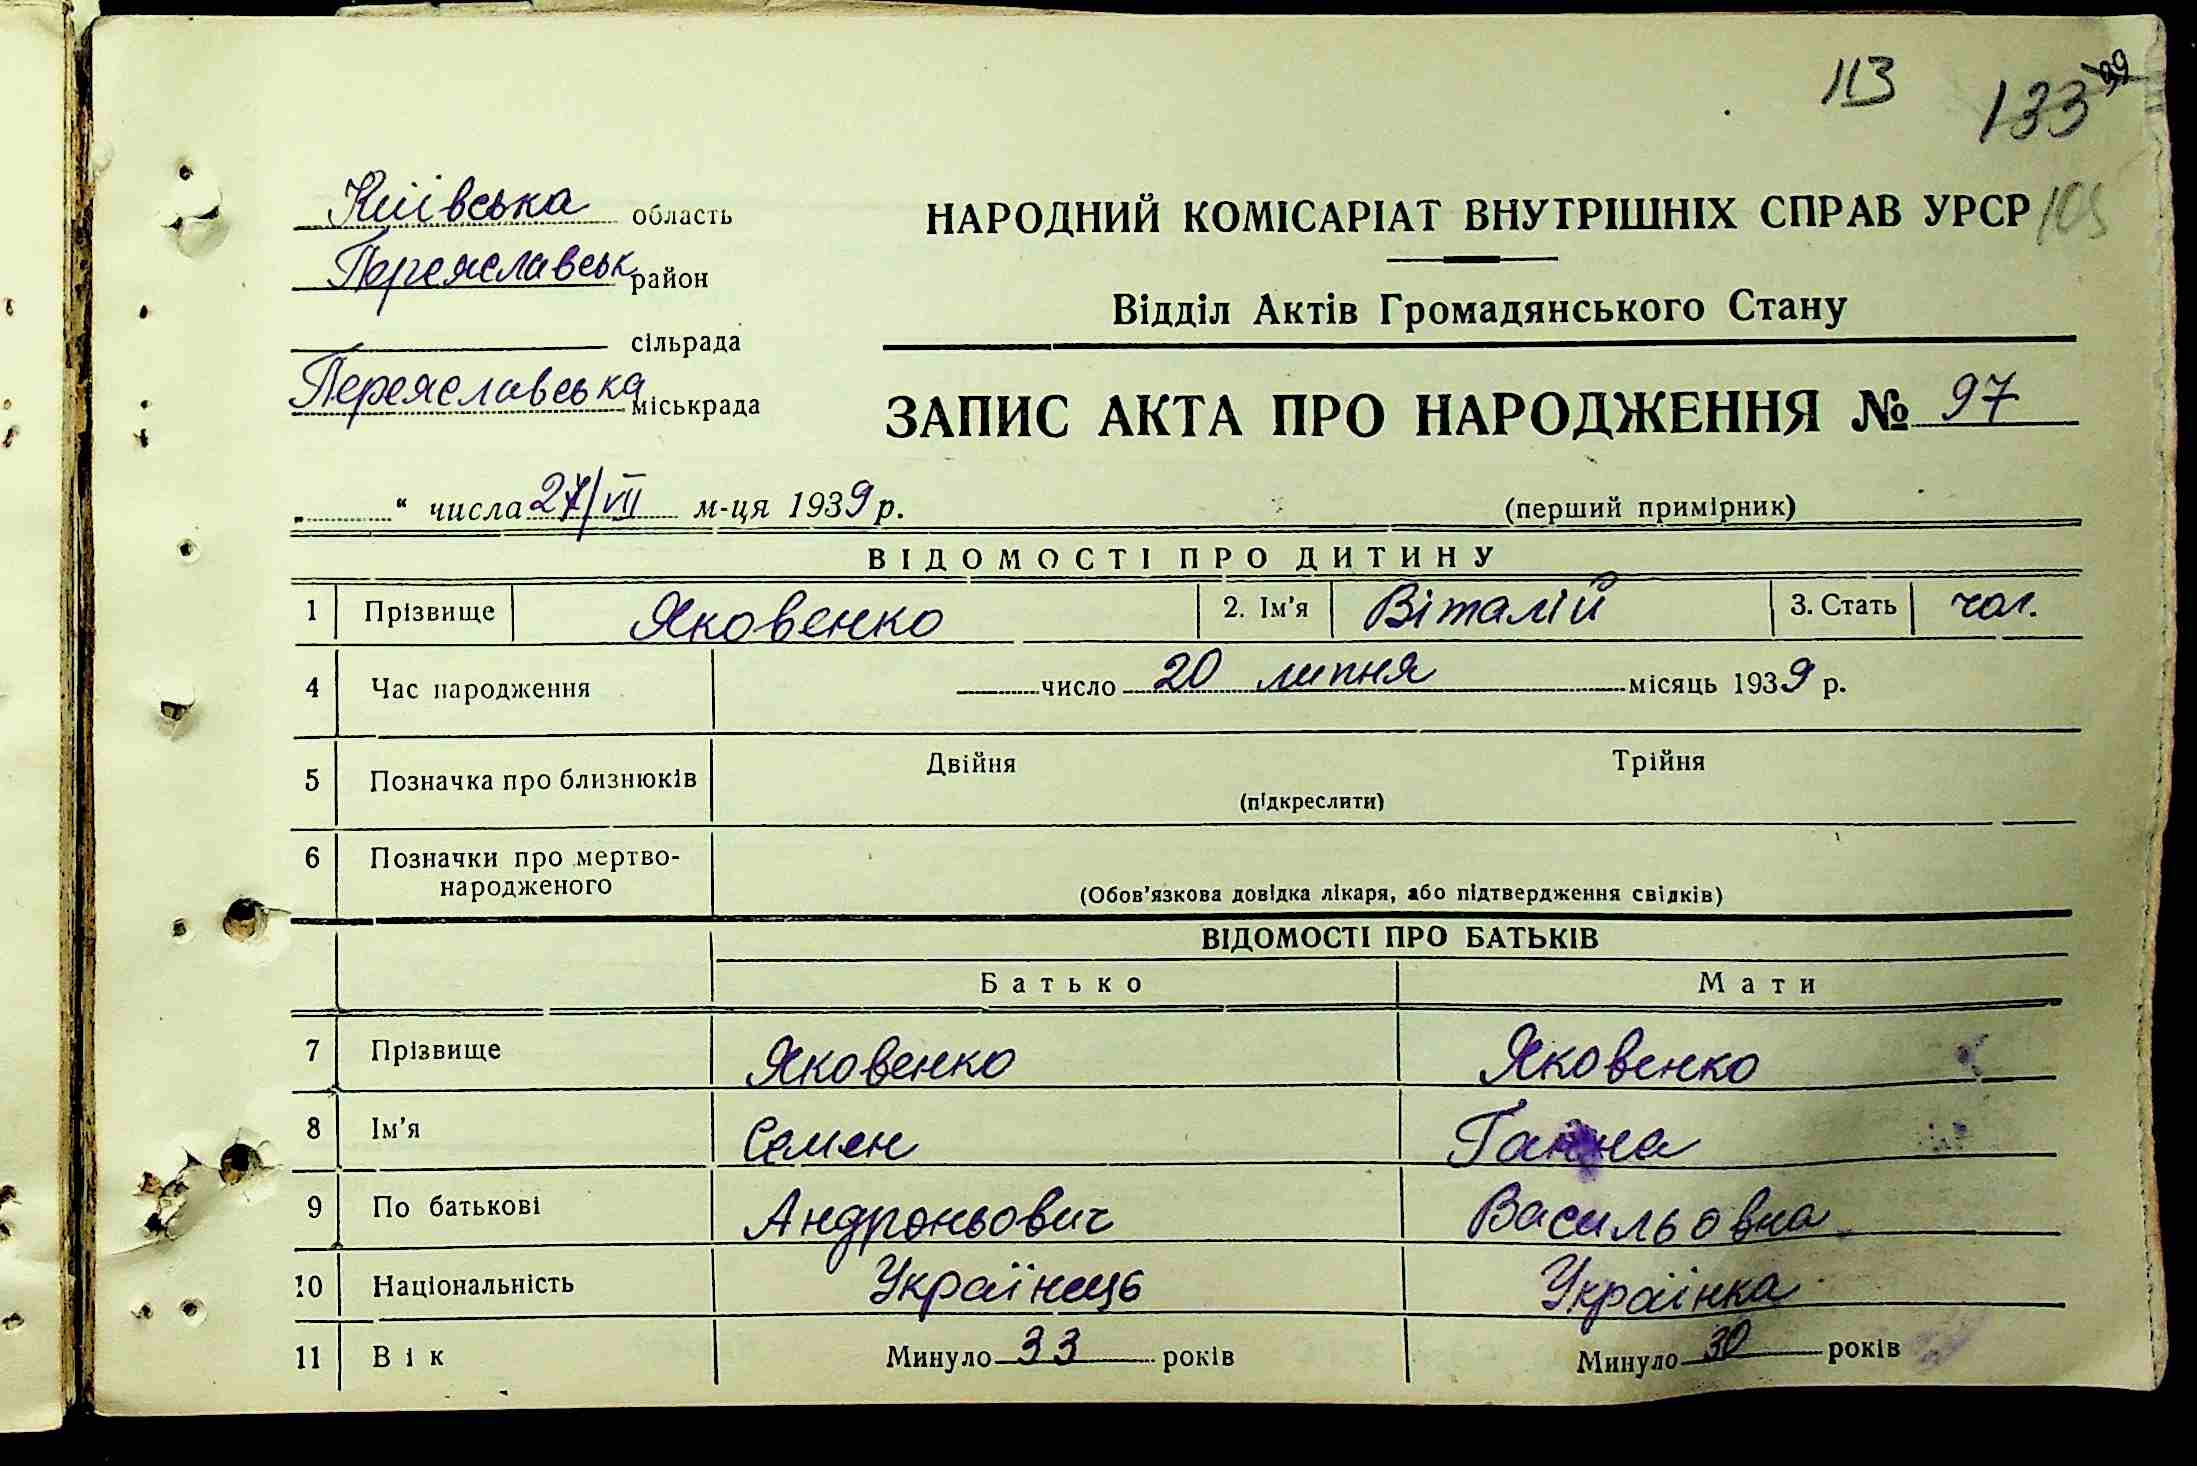 113
133 99
Київська область
НАРОДНИЙ КОМІСАРІАТ ВНУТРІШНІХ СПРАВ УРСР 105
Переяславськ район
Відділ Актів Громадянського Стану
сільрада
Переяславська міськрада
ЗАПИС АКТА ПРО НАРОДЖЕННЯ № 97
„ “ числа 27/VII м-ця 1939 р. (перший примірник)
ВІДОМОСТІ ПРО ДИТИНУ
1 Прізвище Яковенко 2. Ім'я Віталій 3. Стать чол.
4 Час народження число 20 липня місяць 1939 р.
5 Позначка про близнюків Двійня Трійня
(підкреслити)
6 Позначки про мертво-
народженого
(Обов'язкова довідка лікаря, або підтвердження свідків)
ВІДОМОСТІ ПРО БАТЬКІВ
Батько Мати
7 Прізвище Яковенко Яковенко
8 Ім'я Семен Ганна
9 По батькові Андроньович Васильовна
10 Національність Українець Українка
11 Вік Минуло 33 років Минуло 30 років